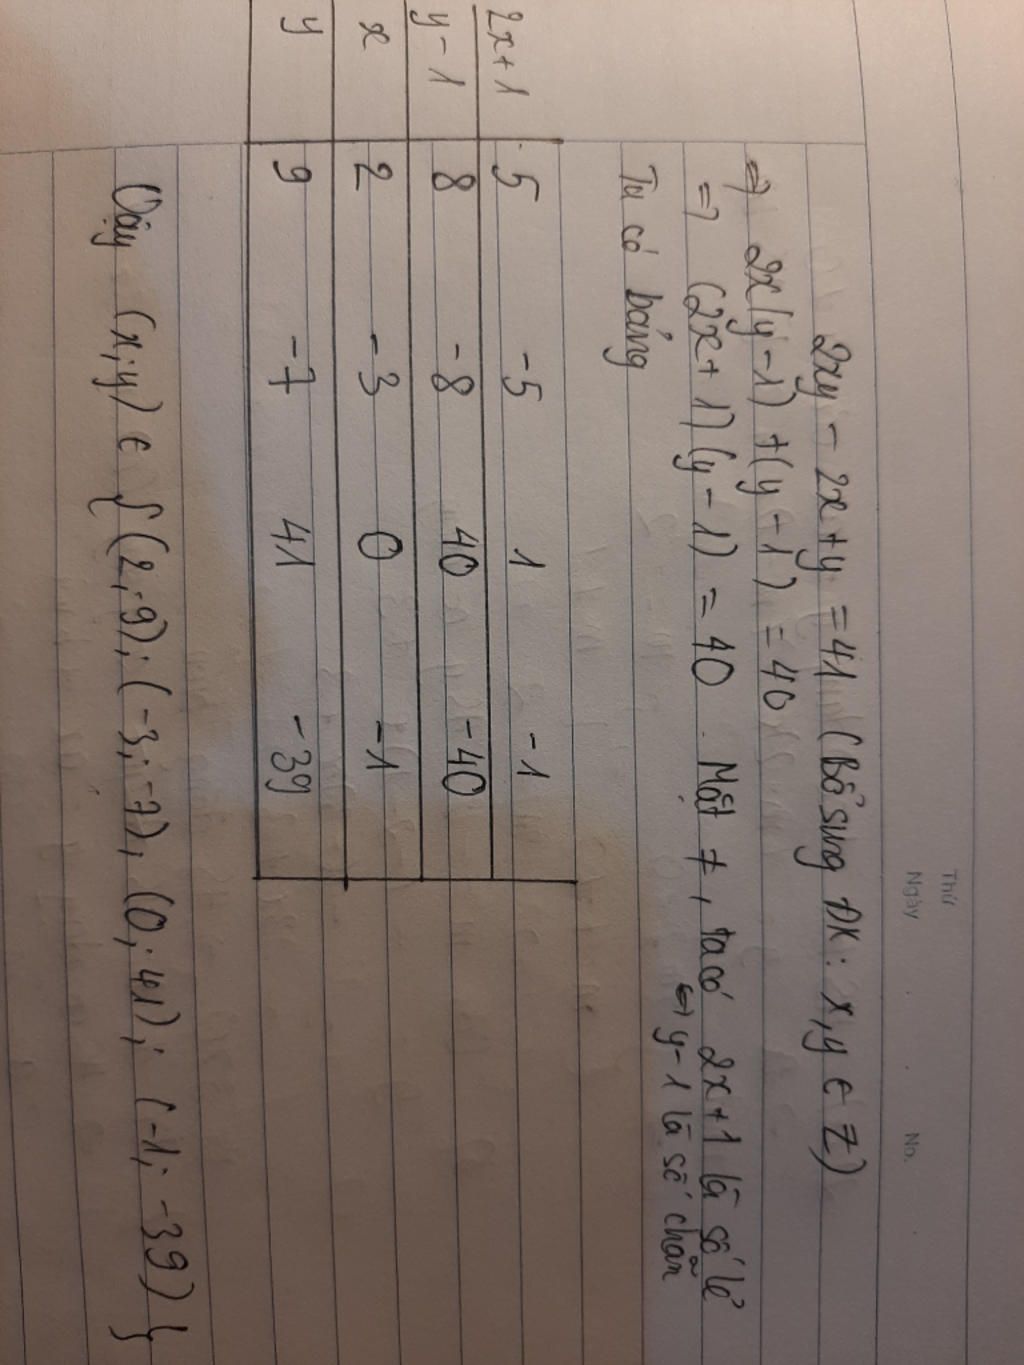 Thứ
Ngày No.
2xy - 2x + y = 41 (Bổ sung ĐK: x, y ∈ Z)
=> 2x(y-1) + (y-1) = 40
=> (2x+1)(y-1) = 40. Mặt ≠, ta có 2x+1 là số lẻ
<=> y-1 là số chẵn
Ta có bảng
2x+1 5 -5 1 -1
y-1 8 -8 40 -40
x 2 -3 0 -1
y 9 -7 41 -39
Vậy (x;y) ∈ {(2;9); (-3;-7), (0;41); (-1;-39)}